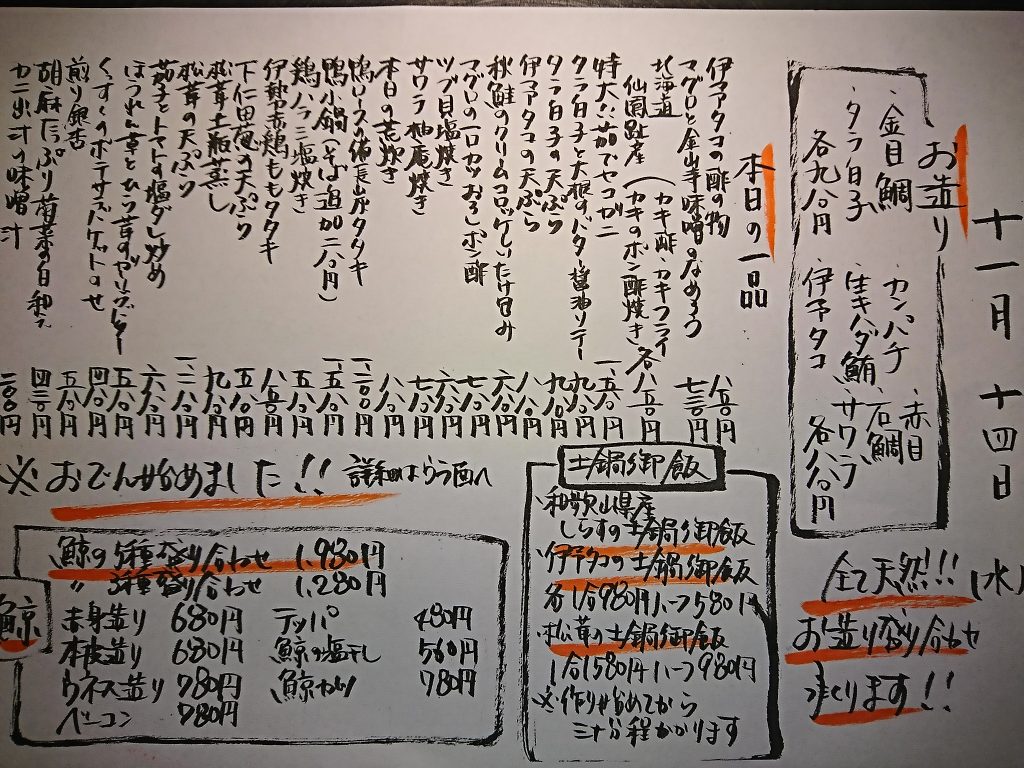 十一月十四日(水)
お造り
・金目鯛
・タラ白子
各九八〇円
・カンパチ
・生キハダ鮪
・伊予タコ
・赤目
・石鯛
・サワラ
各八八〇円
全て天然!!!
お造り盛り合わせ
つくります!!
本日の一品
伊予タコの酢の物 八八〇円
マグロと金山寺味噌のなめろう 七三〇円
北海道
仙鳳趾産(カキ酢・カキフライ
(カキのポン酢焼き 各八八〇円
特大ハス茹でセコガニ 一、五八〇円
タラ白子と大根のバター醤油ソテー 九八〇円
タラ白子の天ぷら 九八〇円
伊予タコの天ぷら 八八〇円
秋鮭のクリームコロッケしいたけ包み 六八〇円
マグロの一口カツおろしポン酢 七八〇円
ツブ貝塩焼き 六八〇円
サワラ柚庵焼き 七八〇円
本日の荒炊き 八八〇円
鴨ロースの備長炭タタキ 一、二〇〇円
鴨小鍋(そば追加二八〇円) 一、五八〇円
鶏ハラミ塩焼き 五八〇円
伊勢赤鶏ももタタキ 八五〇円
下仁田葱の天ぷら 五八〇円
松茸土瓶蒸し 九八〇円
松茸の天ぷら 一、二八〇円
茄子とトマトの塩ダレ炒め 六八〇円
ほうれん草とひら茸のヤリブドー 五八〇円
くんすくのポテサラバケットのせ 四八〇円
煎り銀杏 五八〇円
胡麻たっぷり菊菜の白和え 四三〇円
カニ出汁の味噌汁 二〇〇円
※おでん始めました!! 詳細はうら面へ
土鍋御飯
・和歌山県産
しらすの土鍋御飯
・伊予タコの土鍋御飯
各1合980円ハーフ580円
・松茸の土鍋御飯
1合1580円ハーフ980円
※作り始めてから
三十分程かかります
鯨
鯨の5種盛り合わせ 1,980円
〃 3種盛り合わせ 1,280円
赤身造り 680円
本皮造り 680円
ウネス造り 780円
ベーコン 780円
テッパ 480円
鯨の塩干し 560円
鯨カツ 780円